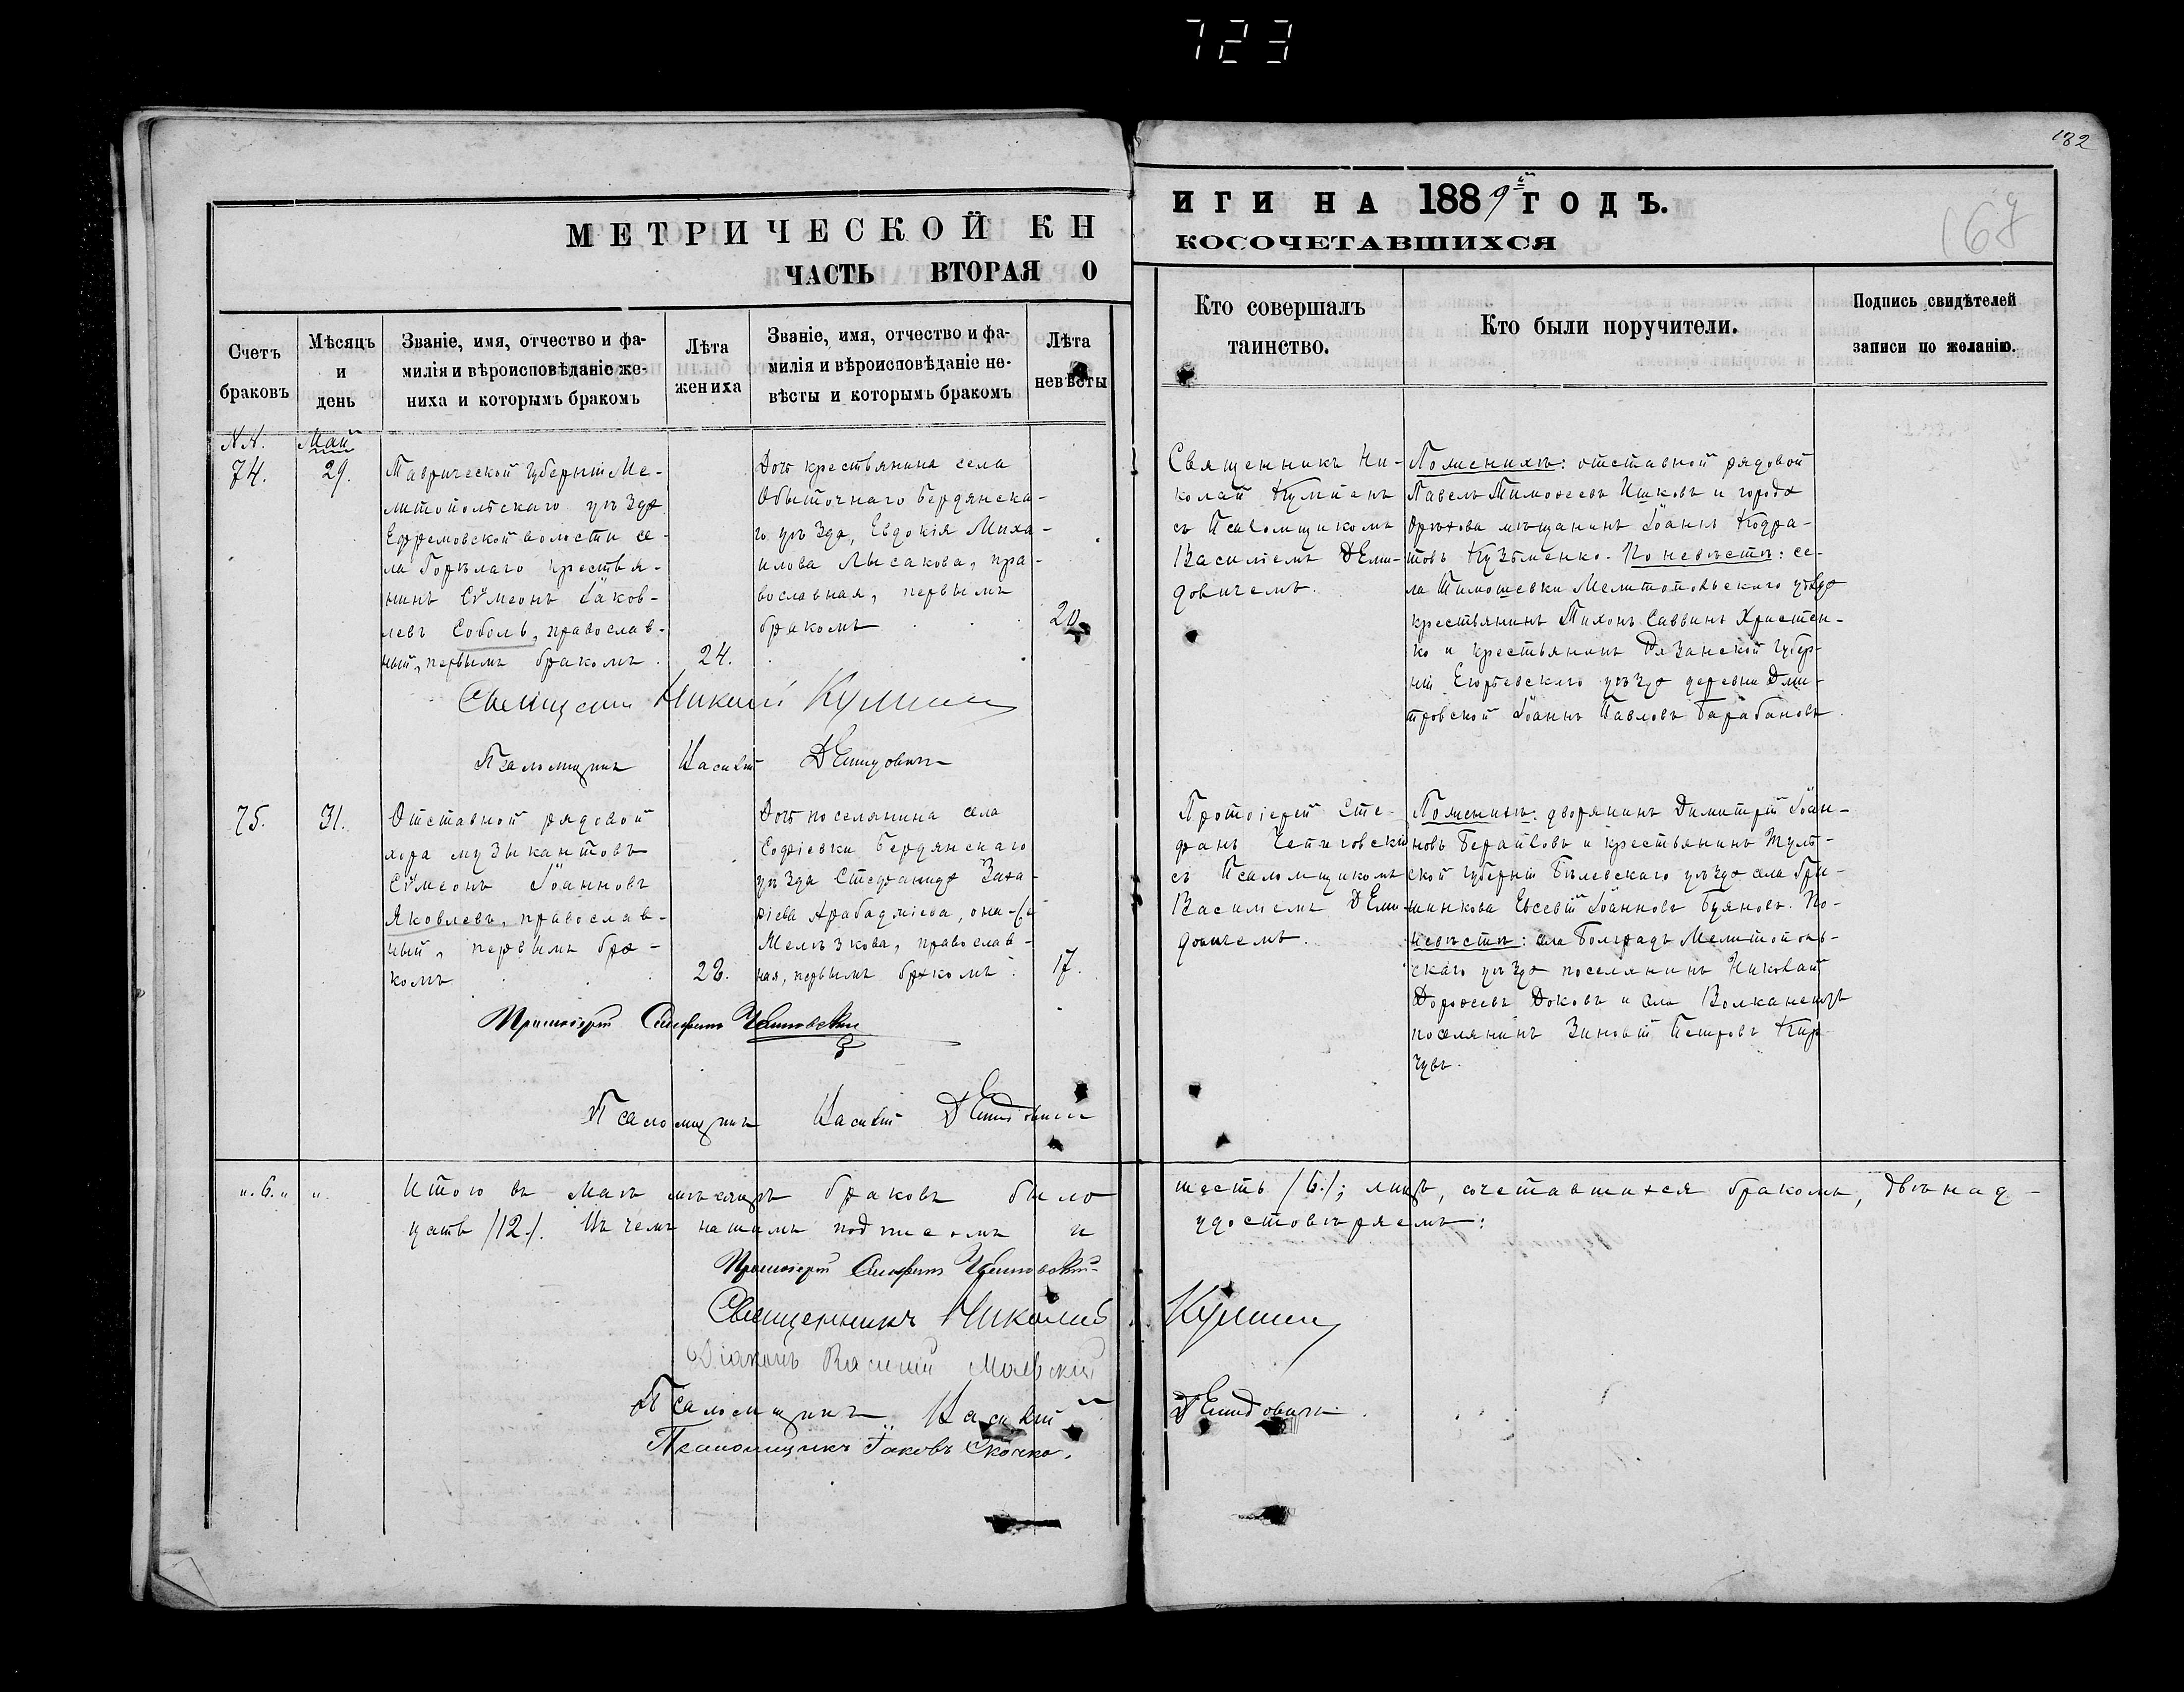 723
182
169
МЕТРИЧЕСКОЙ КН
ИГИ НА 1889й ГОДЪ.
ЧАСТЬ ВТОРАЯ О
КОСОЧЕТАВШИХСЯ
Счетъ
браковъ
Мѣсяцъ
и
день
Званіе, имя, отчество и фа-
милія и вѣроисповѣданіе же-
ниха и которымъ бракомъ
Лѣта
жениха
Званіе, имя, отчество и фа-
милія и вѣроисповѣданіе не-
вѣсты и которымъ бракомъ
Лѣта
невѣсты
Кто совершалъ
таинство.
Кто были поручители.
Подпись свидѣтелей
записи по желанію.
NN.
74.
Май
29.
Таврической губерніи Ме-
литопольскаго уѣзда
Ефремовской волости се-
ла Горѣлаго крестья-
нинъ Сѵмеонъ Іаков-
левъ Соболь, православ-
ный, первымъ бракомъ
24.
Дочь крестьянина села
Обыточнаго Бердянска-
го уѣзда, Евдокія Миха-
илова Лысакова, пра-
вославная, первымъ
бракомъ
20.
Священникъ Ни-
колай
съ Псаломщикомъ
Василіемъ Деми-
довичемъ.
По женихѣ: отставной рядовой
Павелъ Тимоѳеевъ Ишковъ и города
Орѣхова мѣщанинъ Іоаннъ Кодра-
товъ Кузьменко. По невѣстѣ: се-
ла Тимошевки Мелитопольскаго уѣзда
крестьянинъ Тихонъ Саввинъ Христен-
ко и крестьянинъ Рязанской губер-
ніи Егорьевскаго уѣзда деревни Дми-
тровской Іоаннъ Павловъ Барабановъ.
Священникъ Николай
Псаломщикъ Василій Демидовичъ
75.
31.
Отставной рядовой
хора музыкантовъ
Сѵмеонъ Іоанновъ
Яковлевъ, православ-
ный, первымъ бра-
комъ
28.
Дочь поселянина села
Софіевки Бердянскаго
уѣзда Стефанида Заха-
ріева Арабаджіева, она-же
православ-
ная, первымъ бракомъ
17.
Протоіерей Сте-
фанъ
съ Псаломщикомъ
Василіемъ Деми-
довичемъ.
По женихѣ: дворянинъ Димитрій Іоан-
новъ и крестьянинъ Туль-
ской губерніи Бѣлевскаго уѣзда села Гри-
шинкова Евсевій Іоанновъ Буяновъ. По
невѣстѣ: села Болградъ Мелитополь-
скаго уѣзда поселянинъ Николай
Дороѳеевъ Доковъ и села Волканештъ
поселянинъ Зиновій Петровъ Кир-
чувъ.
Протоіерей Стефанъ
Псаломщикъ Василій Демидовичъ
"6." " Итого въ маѣ мѣсяцѣ браковъ было шесть /6./; лицъ, сочетавшихся бракомъ, двѣнад-
цать /12./. Въ чемъ нашимъ подписомъ и удостовѣряемъ:
Протоіерей Стефанъ
Священникъ Николай
Діаконъ Василій Маевскій
Псаломщикъ Василій Демидовичъ.
Псаломщикъ Іаковъ Скочко.